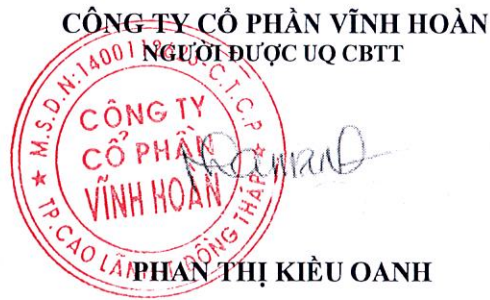 CÔNG TY CỔ PHẦN VĨNH HOÀN
NGƯỜI ĐƯỢC UQ CBTT
M.S.D.N:14001 C.T.C.P
CÔNG TY
CỔ PHẦN
VĨNH HOÀN
TP.CAO LÃNH-T.ĐỒNG THÁP
PHAN THỊ KIỀU OANH